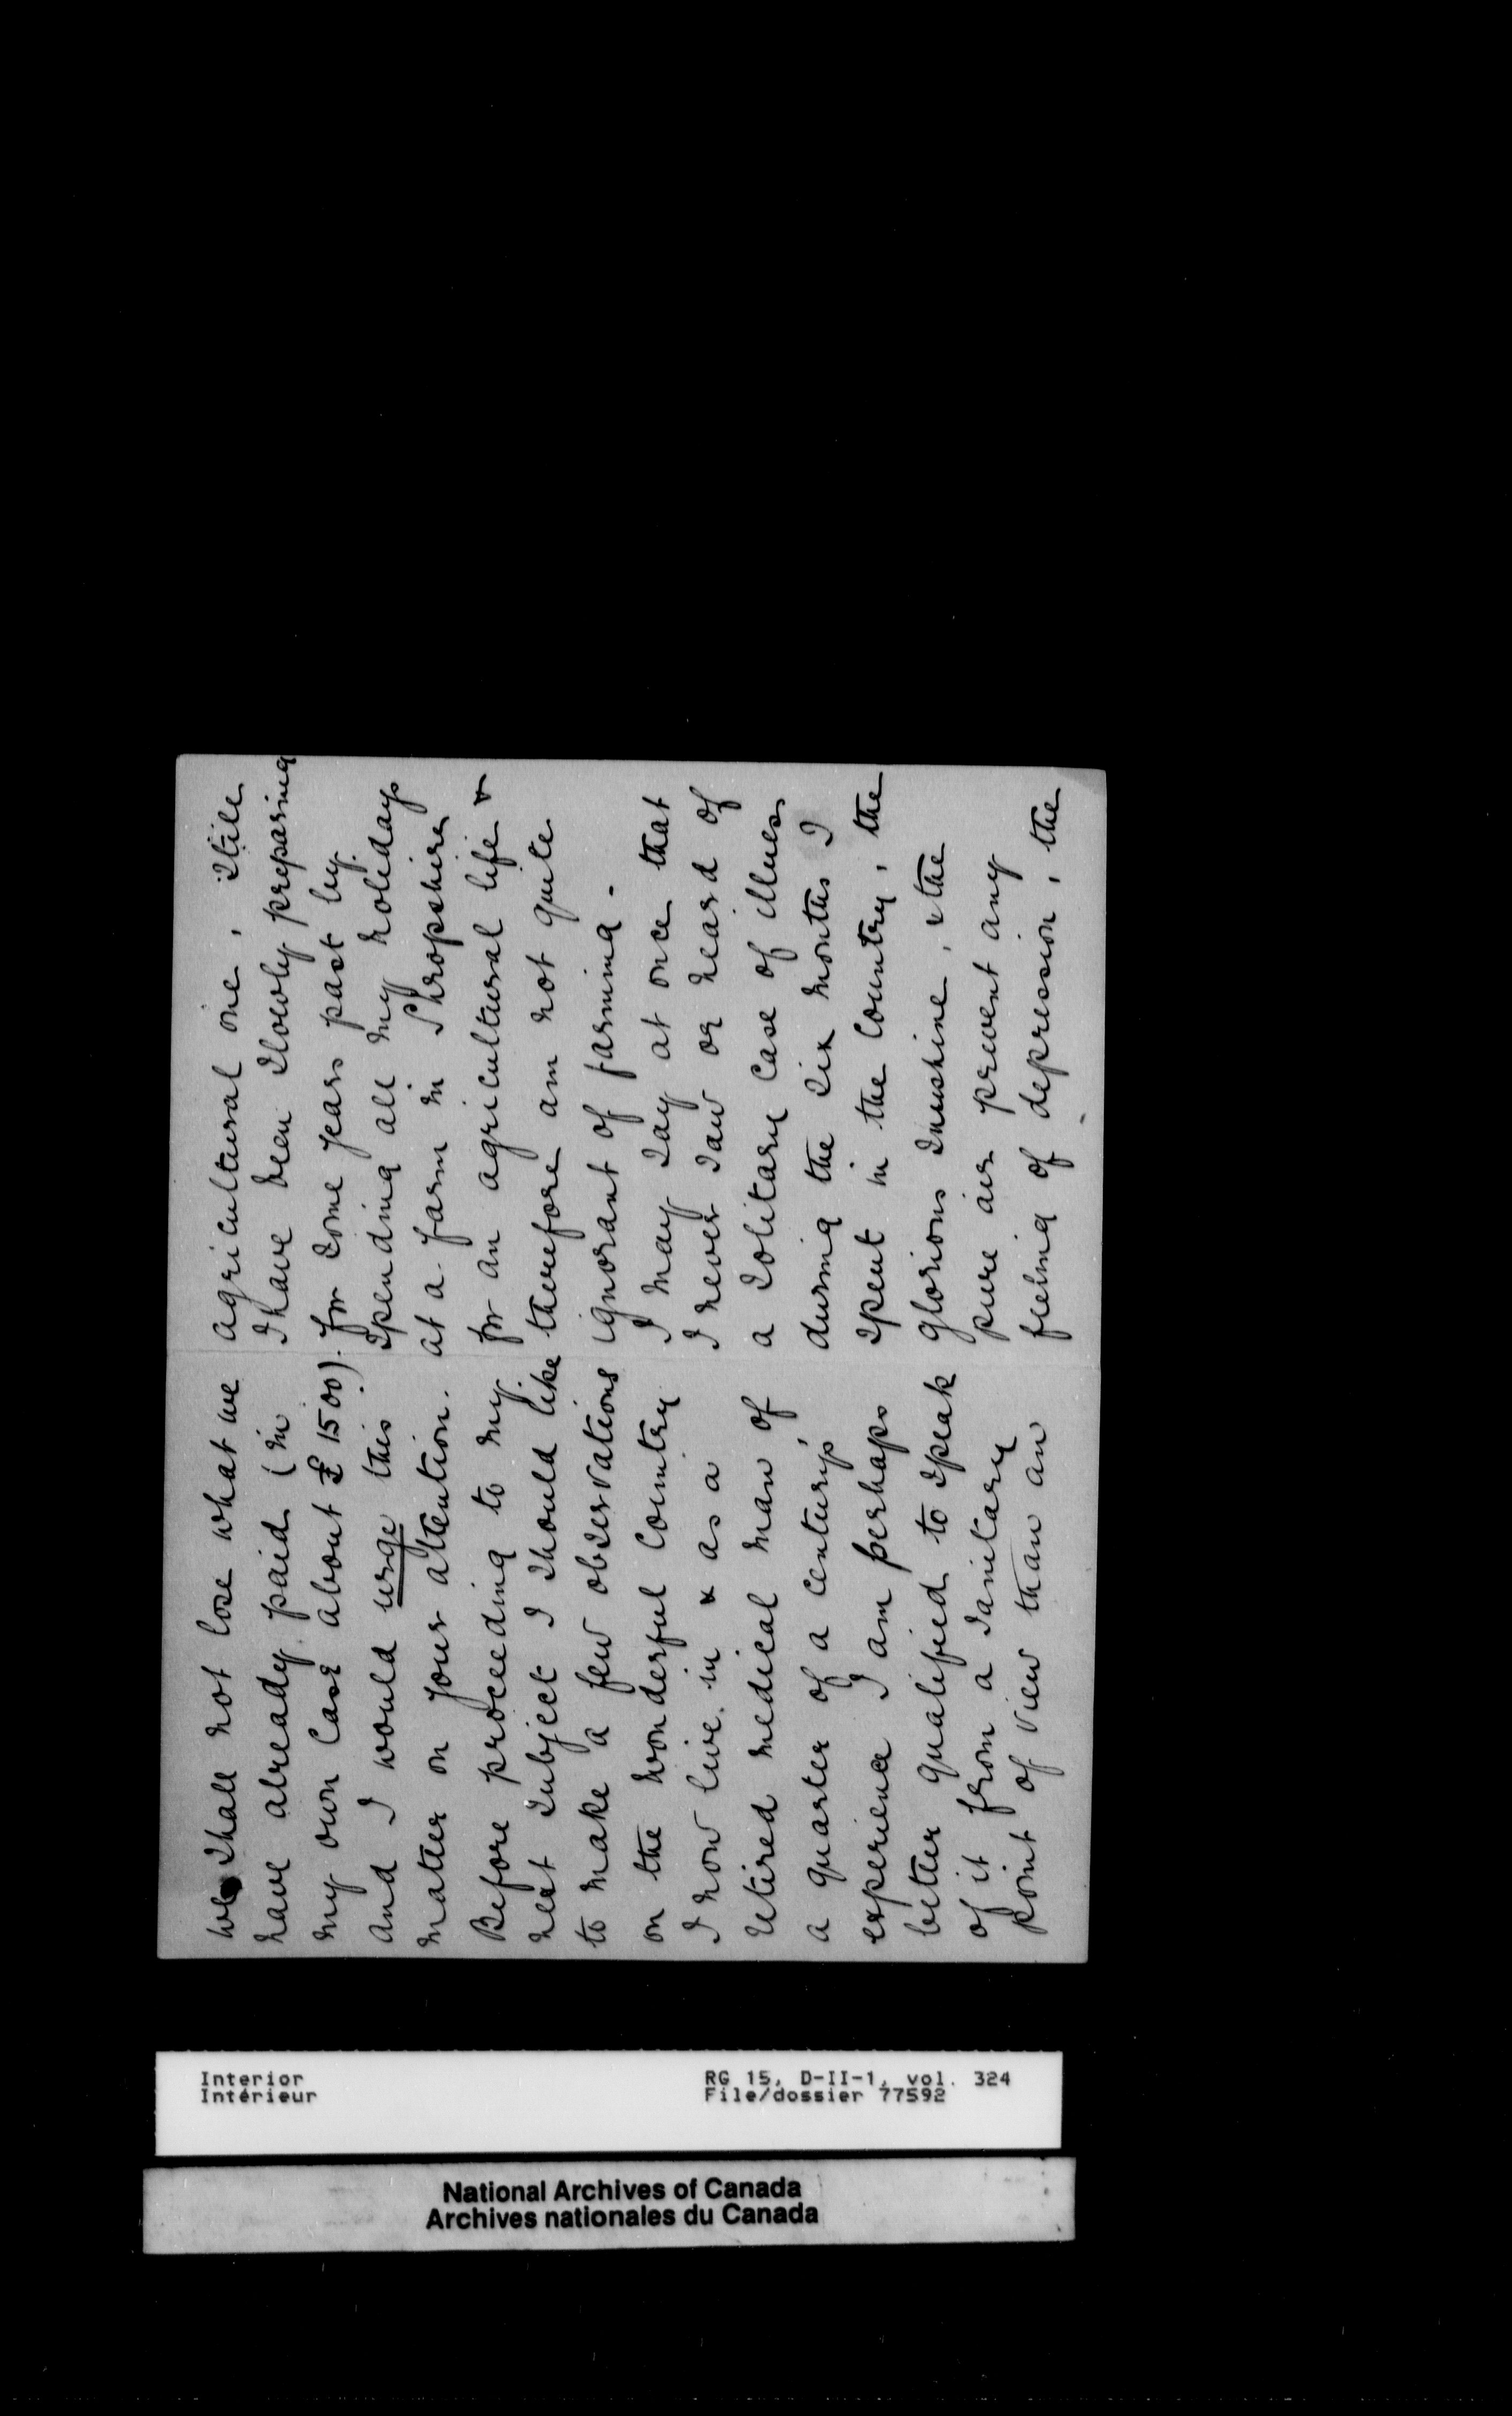 we shall not lose what we
have already paid (in
my own case about £1500).
and I would urge this
matter on your attention.
Before proceeding to my
next subject I should like
to make a few observations
on the wonderful country
I now live in & as a
retired medical man of
a quarter of a century's
experience I am perhaps
better qualified to speak
of it from a sanitary
point of view than an
agricultural one, still
I have been slowly preparing
for some years past by
spending all my holidays
at a farm in Shropshire
for an agricultural life &
therefore am not quite
ignorant of farming.
I may say at once that
I never saw or heard of
a solitary case of illness
during the six months I
spent in the country, the
glorious sunshine, & the
pure air prevent any
feeling of depression, the
Interior
Intérieur
RG 15, D-II-1, vol. 324
File/dossier 77592
National Archives of Canada
Archives nationales du Canada